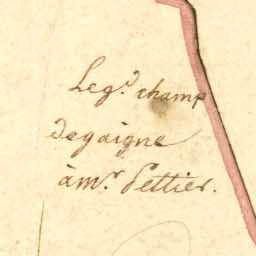 Leg.d champ
degaigne
à mr. Pettier.